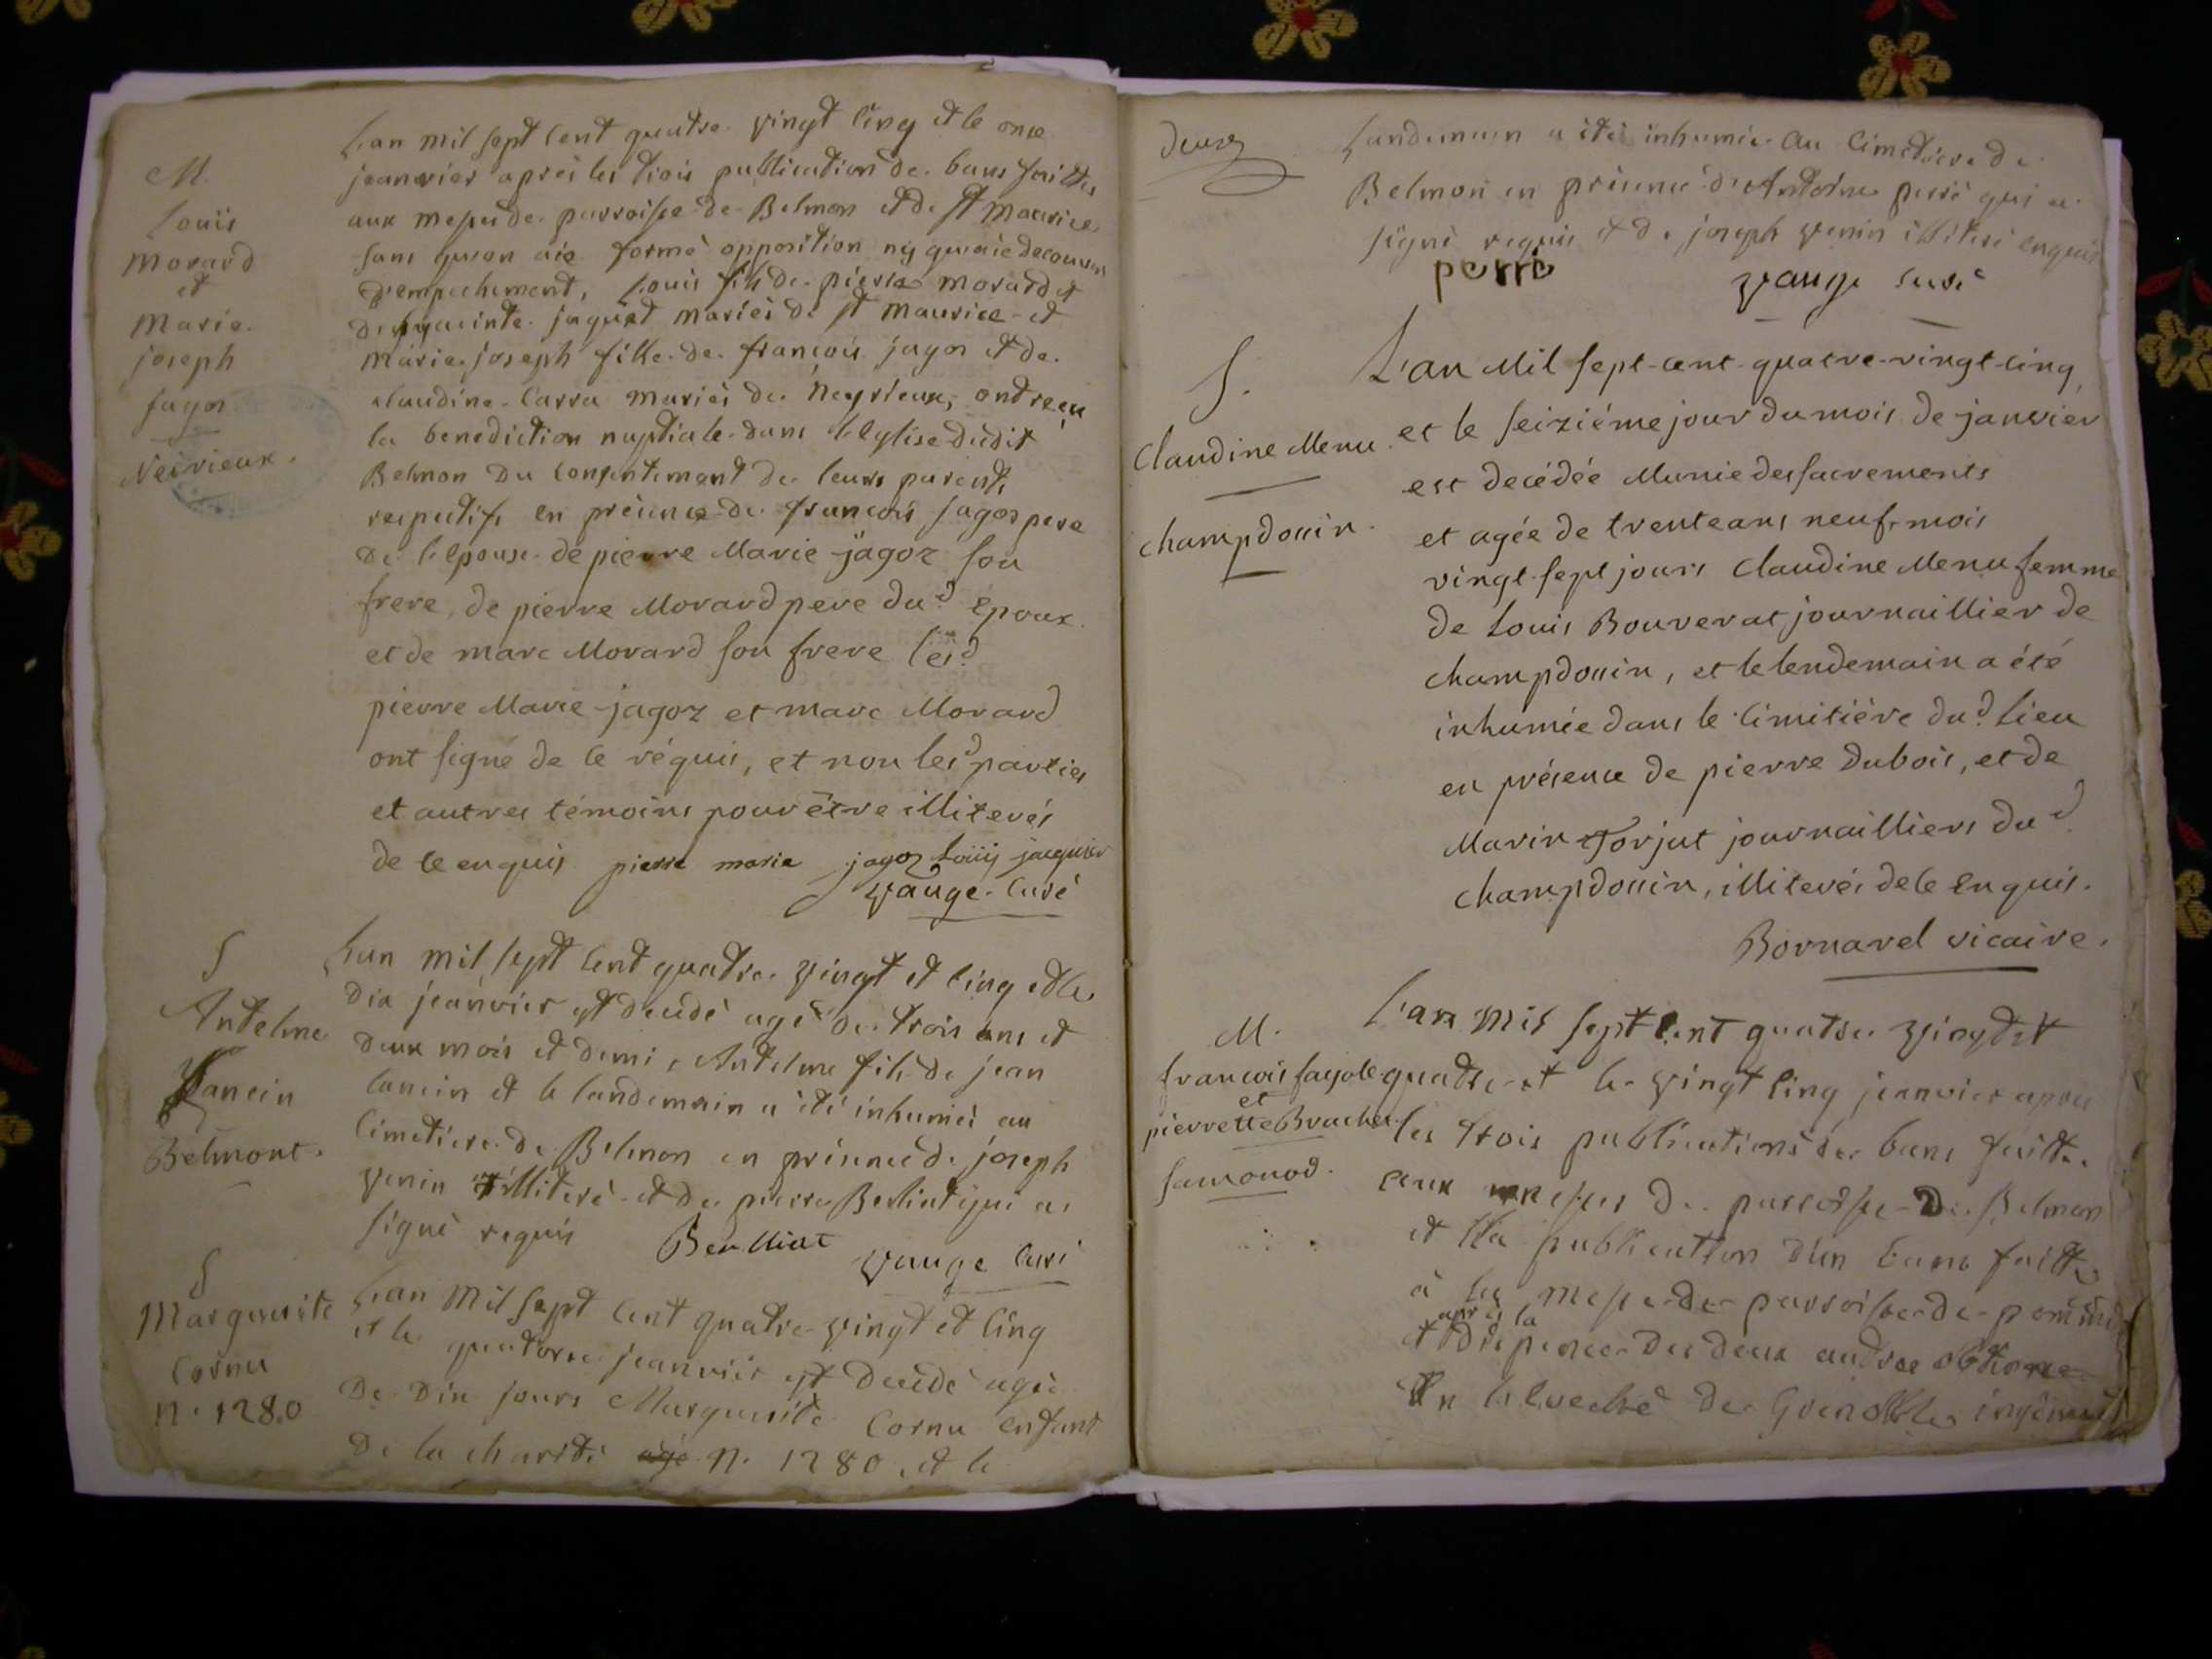 M.
Louis
Morard
et
Marie
joseph
jagoz
Neirieux.
L'an mil sept cent quatre vingt cinq et le onze
jeanvier après les trois publication de bans faittes
aux messes de parroisse de Belmon et de St Maurice
sans qu'on aie formé opposition ny qu'aie decouvert
d'empechement, Louis fils de pierre morard et
de hyacinte jaquet mariés de St Maurice et
Marie joseph fille de francois jagoz et de
claudine Carra mariés de Neyrieux, ont reçu
la benediction nuptiale dans l'eglise dudit
Belmon du consentement de leurs parents
respectifs en présence de francois jagoz pere
de l'epouse de pierre Marie jagoz son
frere, de pierre Morard pere dud. epoux
et de marc Morard son frere lesd.
pierre Marie jagoz et marc Morard
ont signé de ce réquis, et non lesd parties
et autres témoins pour être illiterés
de ce enquis pierre marie jagoz Louis jacquier
vauge curé
S
Antelme
Lancin
Belmont.
L'an mil sept cent quatre vingt et cinq et le
dix jeanvier est decedé agé de trois ans et
deux mois et demi, Antelme fils de jean
Lancin et le landemain a été inhumé au
cimetiere de Belmon en présence de joseph
venin illiteré et de pierre Berliat qui a
signé requis Berlliat
vauge curé
S
Marguerite
Cornu
n. 1280
L'an Mil sept cent quatre vingt et cinq
et le quatorze jeanvier est decedé agée
de dix jours Marguerite Cornu enfant
de la charité agé n. 1280, et le
deux
Landemain a été inhumée au cimetiere de
Belmon en présence d'Antoine perré qui a
signé requis et de joseph venin illiteré enquis
perré vauge curé
S.
Claudine Menu
champdossin.
L'an Mil sept-cent-quatre-vingt-cinq,
et le seiziéme jour du mois de janvier
est decédée Munie des sacrements
et agée de trente ans neuf mois
vingt-sept jours Claudine Menu femme
de Louis Bouverat journaillier de
champdossin, et le lendemain a été
inhumée dans le cimitiére dud. lieu
en présence de pierre Dubois, et de
Marin Torjut journailliers dud.
champdossin, illiterés de ce enquis.
Bornarel vicaire.
M.
francois fayole
et
pierrette Brachet
samonod.
L'an Mil sept cent quatre vingt et
quatre et le vingt cinq jeanvier apres
les trois publications de bans faitte
aux messes de parroisse de Belmon
et la publication d'un bans faitte
à les messe de parroisse de
après la
et dispence des deux autres obtenue
en l'eveché de Grenoble